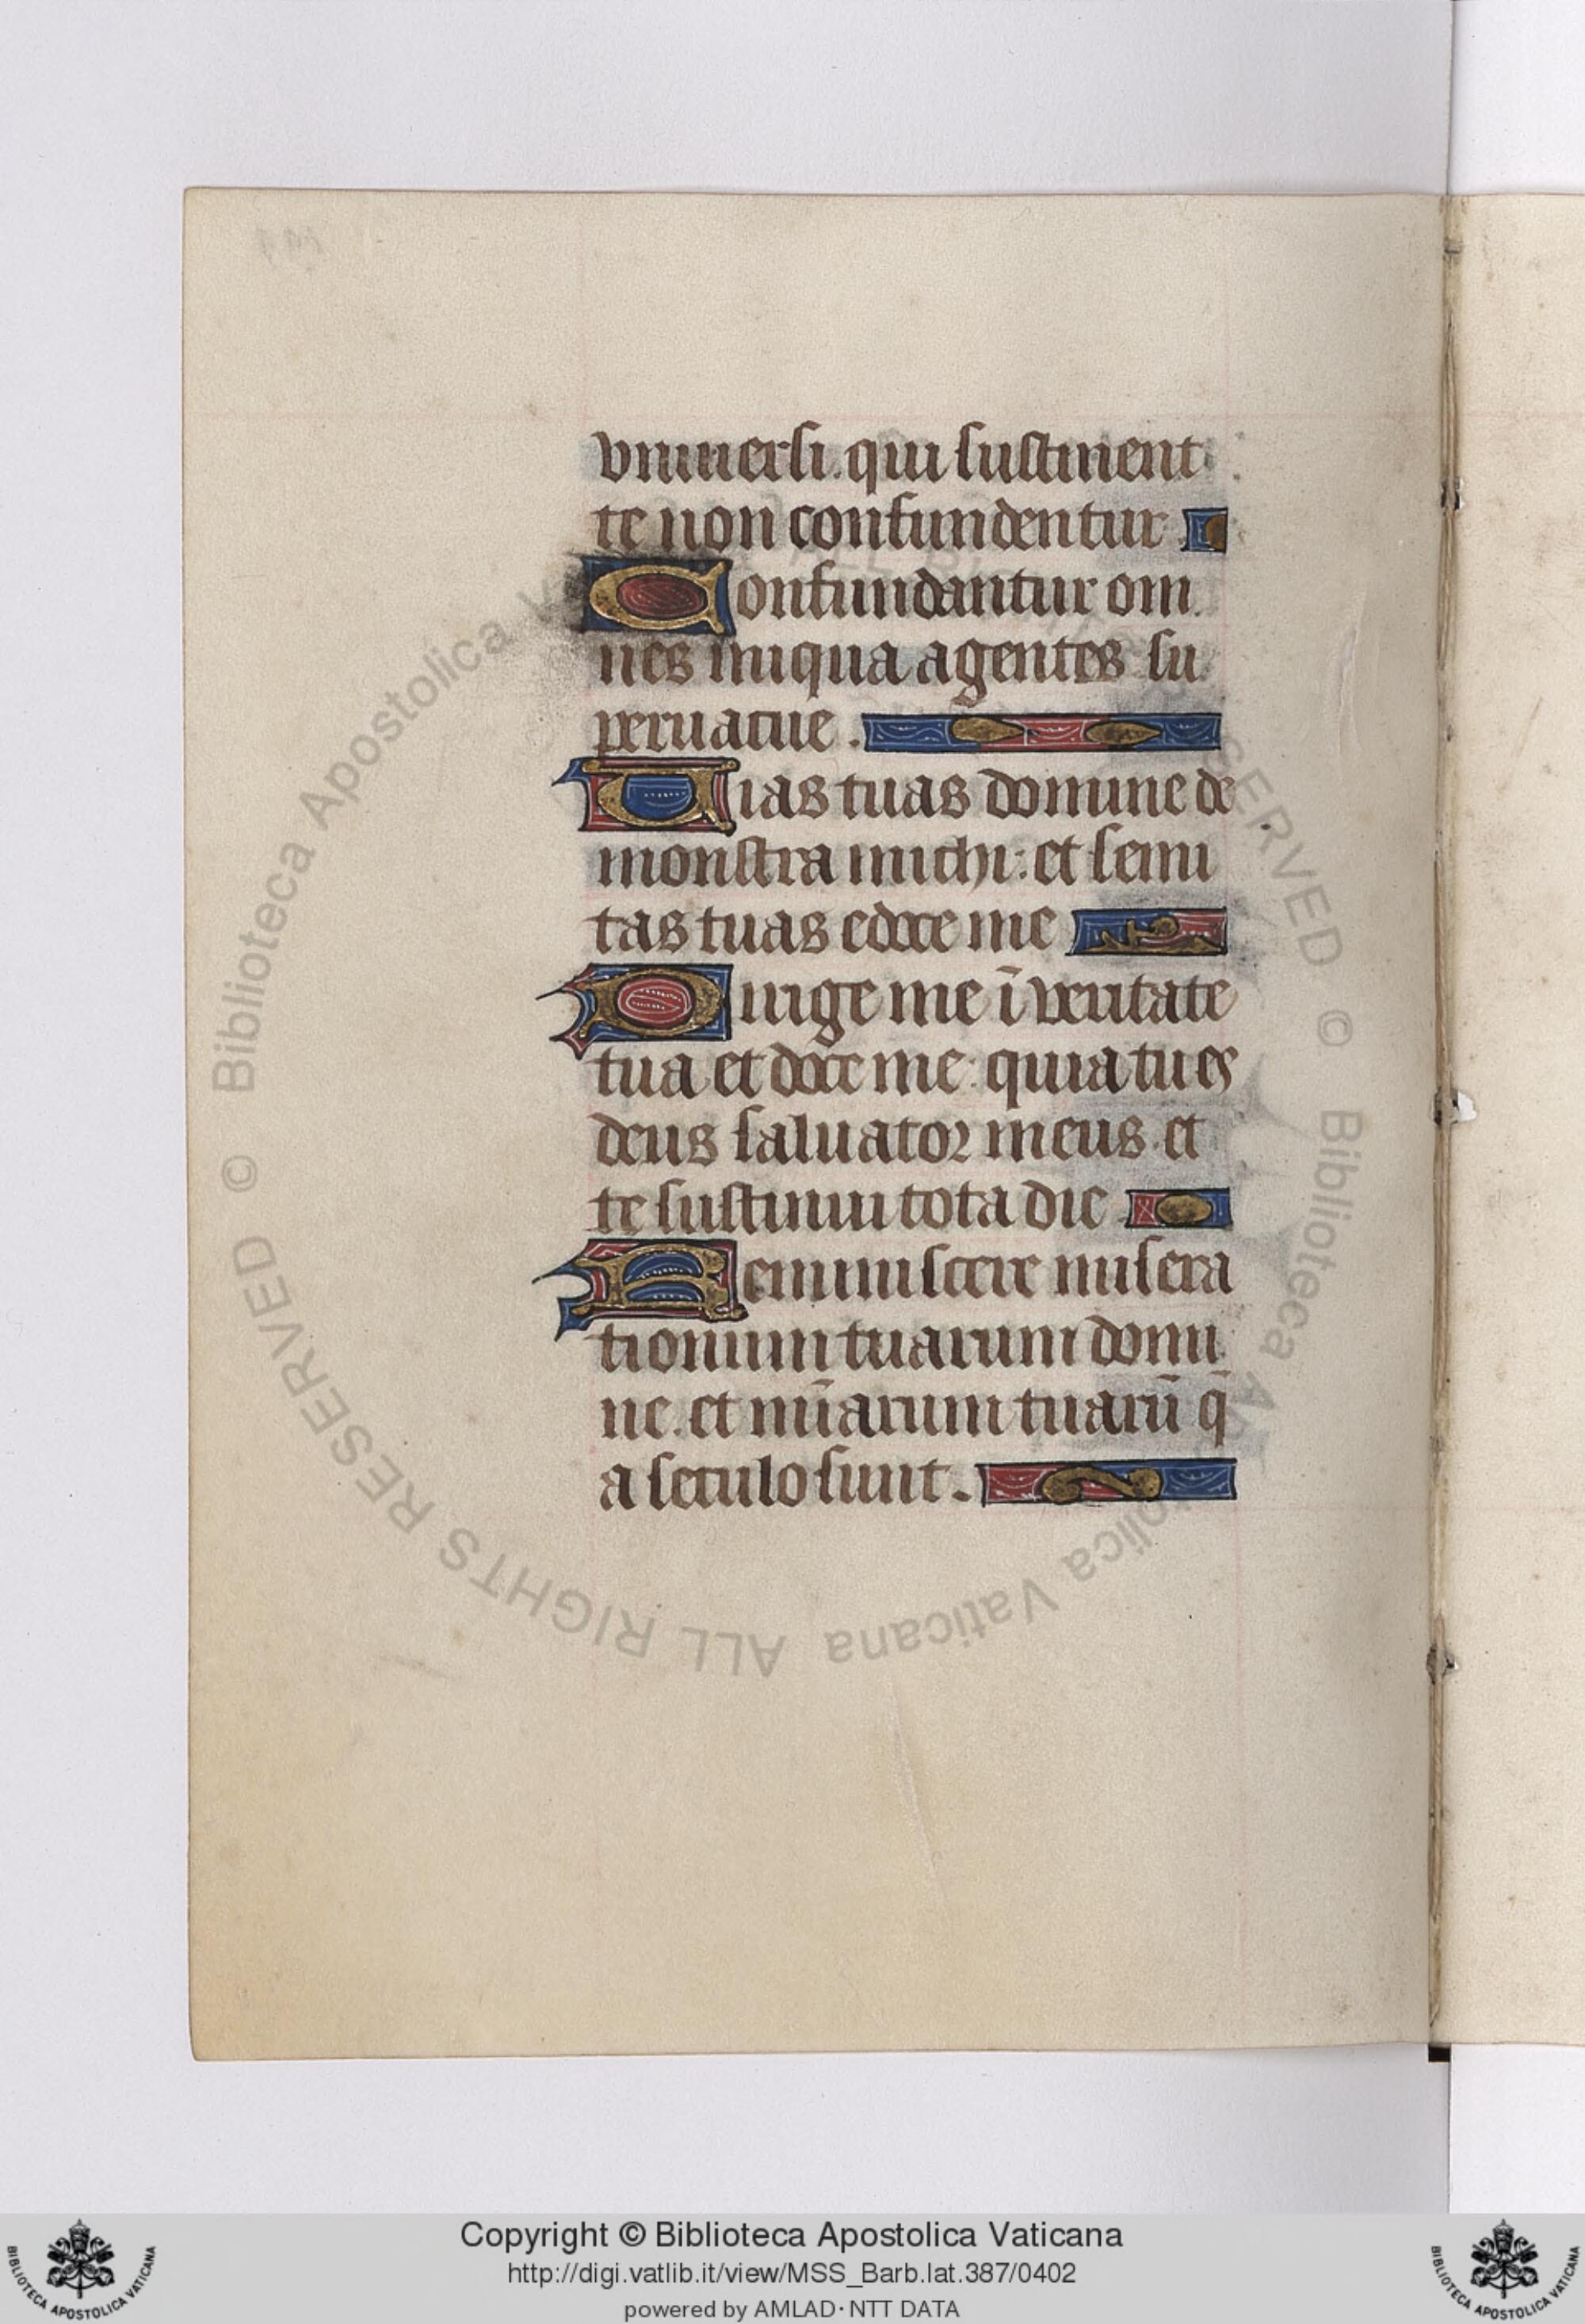 vniuersi. qui sustinent
te non confundentur.
Confundantur om
nes iniqua agentes su
peruacue.
Uias tuas domine de
monstra michi: et semi
tas tuas edoce me
Dirige me ī veritate
tua et doce me: quia tu es
deus saluator meus. et
te sustinui tota die
Reminiscere misera
tionum tuarum domi
ne. et mīarum tuarū q̄
a seculo sunt.
© Biblioteca Apostolica Vaticana ALL RIGHTS RESERVED © Biblioteca Apostolica Vaticana ALL RIGHTS RESERVED
Copyright © Biblioteca Apostolica Vaticana
http://digi.vatlib.it/view/MSS_Barb.lat.387/0402
powered by AMLAD·NTT DATA
BIBLIOTECA APOSTOLICA VATICANA
BIBLIOTECA APOSTOLICA VATICANA